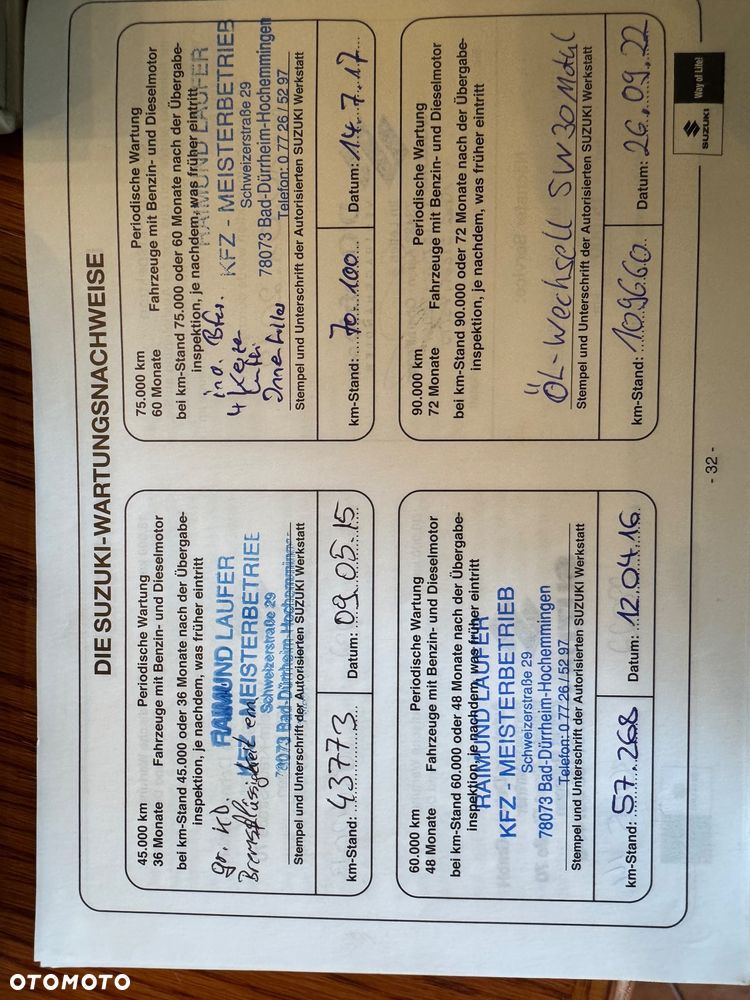 DIE SUZUKI-WARTUNGSNACHWEISE
45.000 km Periodische Wartung
36 Monate Fahrzeuge mit Benzin- und Dieselmotor
bei km-Stand 45.000 oder 36 Monate nach der Übergabe-
inspektion, je nachdem, was früher eintritt
gr. KD.
Bremsflüssigkeit ern
RAIMUND LAUFER
KFZ - MEISTERBETRIEB
Schweizerstraße 29
78073 Bad-Dürrheim-Hochemmingen
Stempel und Unterschrift der Autorisierten SUZUKI Werkstatt
km-Stand: 43773 Datum: 09.05.15
75.000 km Periodische Wartung
60 Monate Fahrzeuge mit Benzin- und Dieselmotor
bei km-Stand 75.000 oder 60 Monate nach der Übergabe-
inspektion, je nachdem, was früher eintritt
4 Kerze
RAIMUND LAUFER
KFZ - MEISTERBETRIEB
Schweizerstraße 29
78073 Bad-Dürrheim-Hochemmingen
Telefon: 0 77 26 / 52 97
Stempel und Unterschrift der Autorisierten SUZUKI Werkstatt
km-Stand: 70.100 Datum: 14.7.17
60.000 km Periodische Wartung
48 Monate Fahrzeuge mit Benzin- und Dieselmotor
bei km-Stand 60.000 oder 48 Monate nach der Übergabe-
inspektion, je nachdem, was früher eintritt
RAIMUND LAUFER
KFZ - MEISTERBETRIEB
Schweizerstraße 29
78073 Bad-Dürrheim-Hochemmingen
Telefon: 0 77 26 / 52 97
Stempel und Unterschrift der Autorisierten SUZUKI Werkstatt
km-Stand: 57.268 Datum: 12.04.16
90.000 km Periodische Wartung
72 Monate Fahrzeuge mit Benzin- und Dieselmotor
bei km-Stand 90.000 oder 72 Monate nach der Übergabe-
inspektion, je nachdem, was früher eintritt
ÖL-Wechsell 5W30
Stempel und Unterschrift der Autorisierten SUZUKI Werkstatt
km-Stand: 109660 Datum: 26.09.22
- 32 -
SUZUKI Way of Life!
OTOMOTO